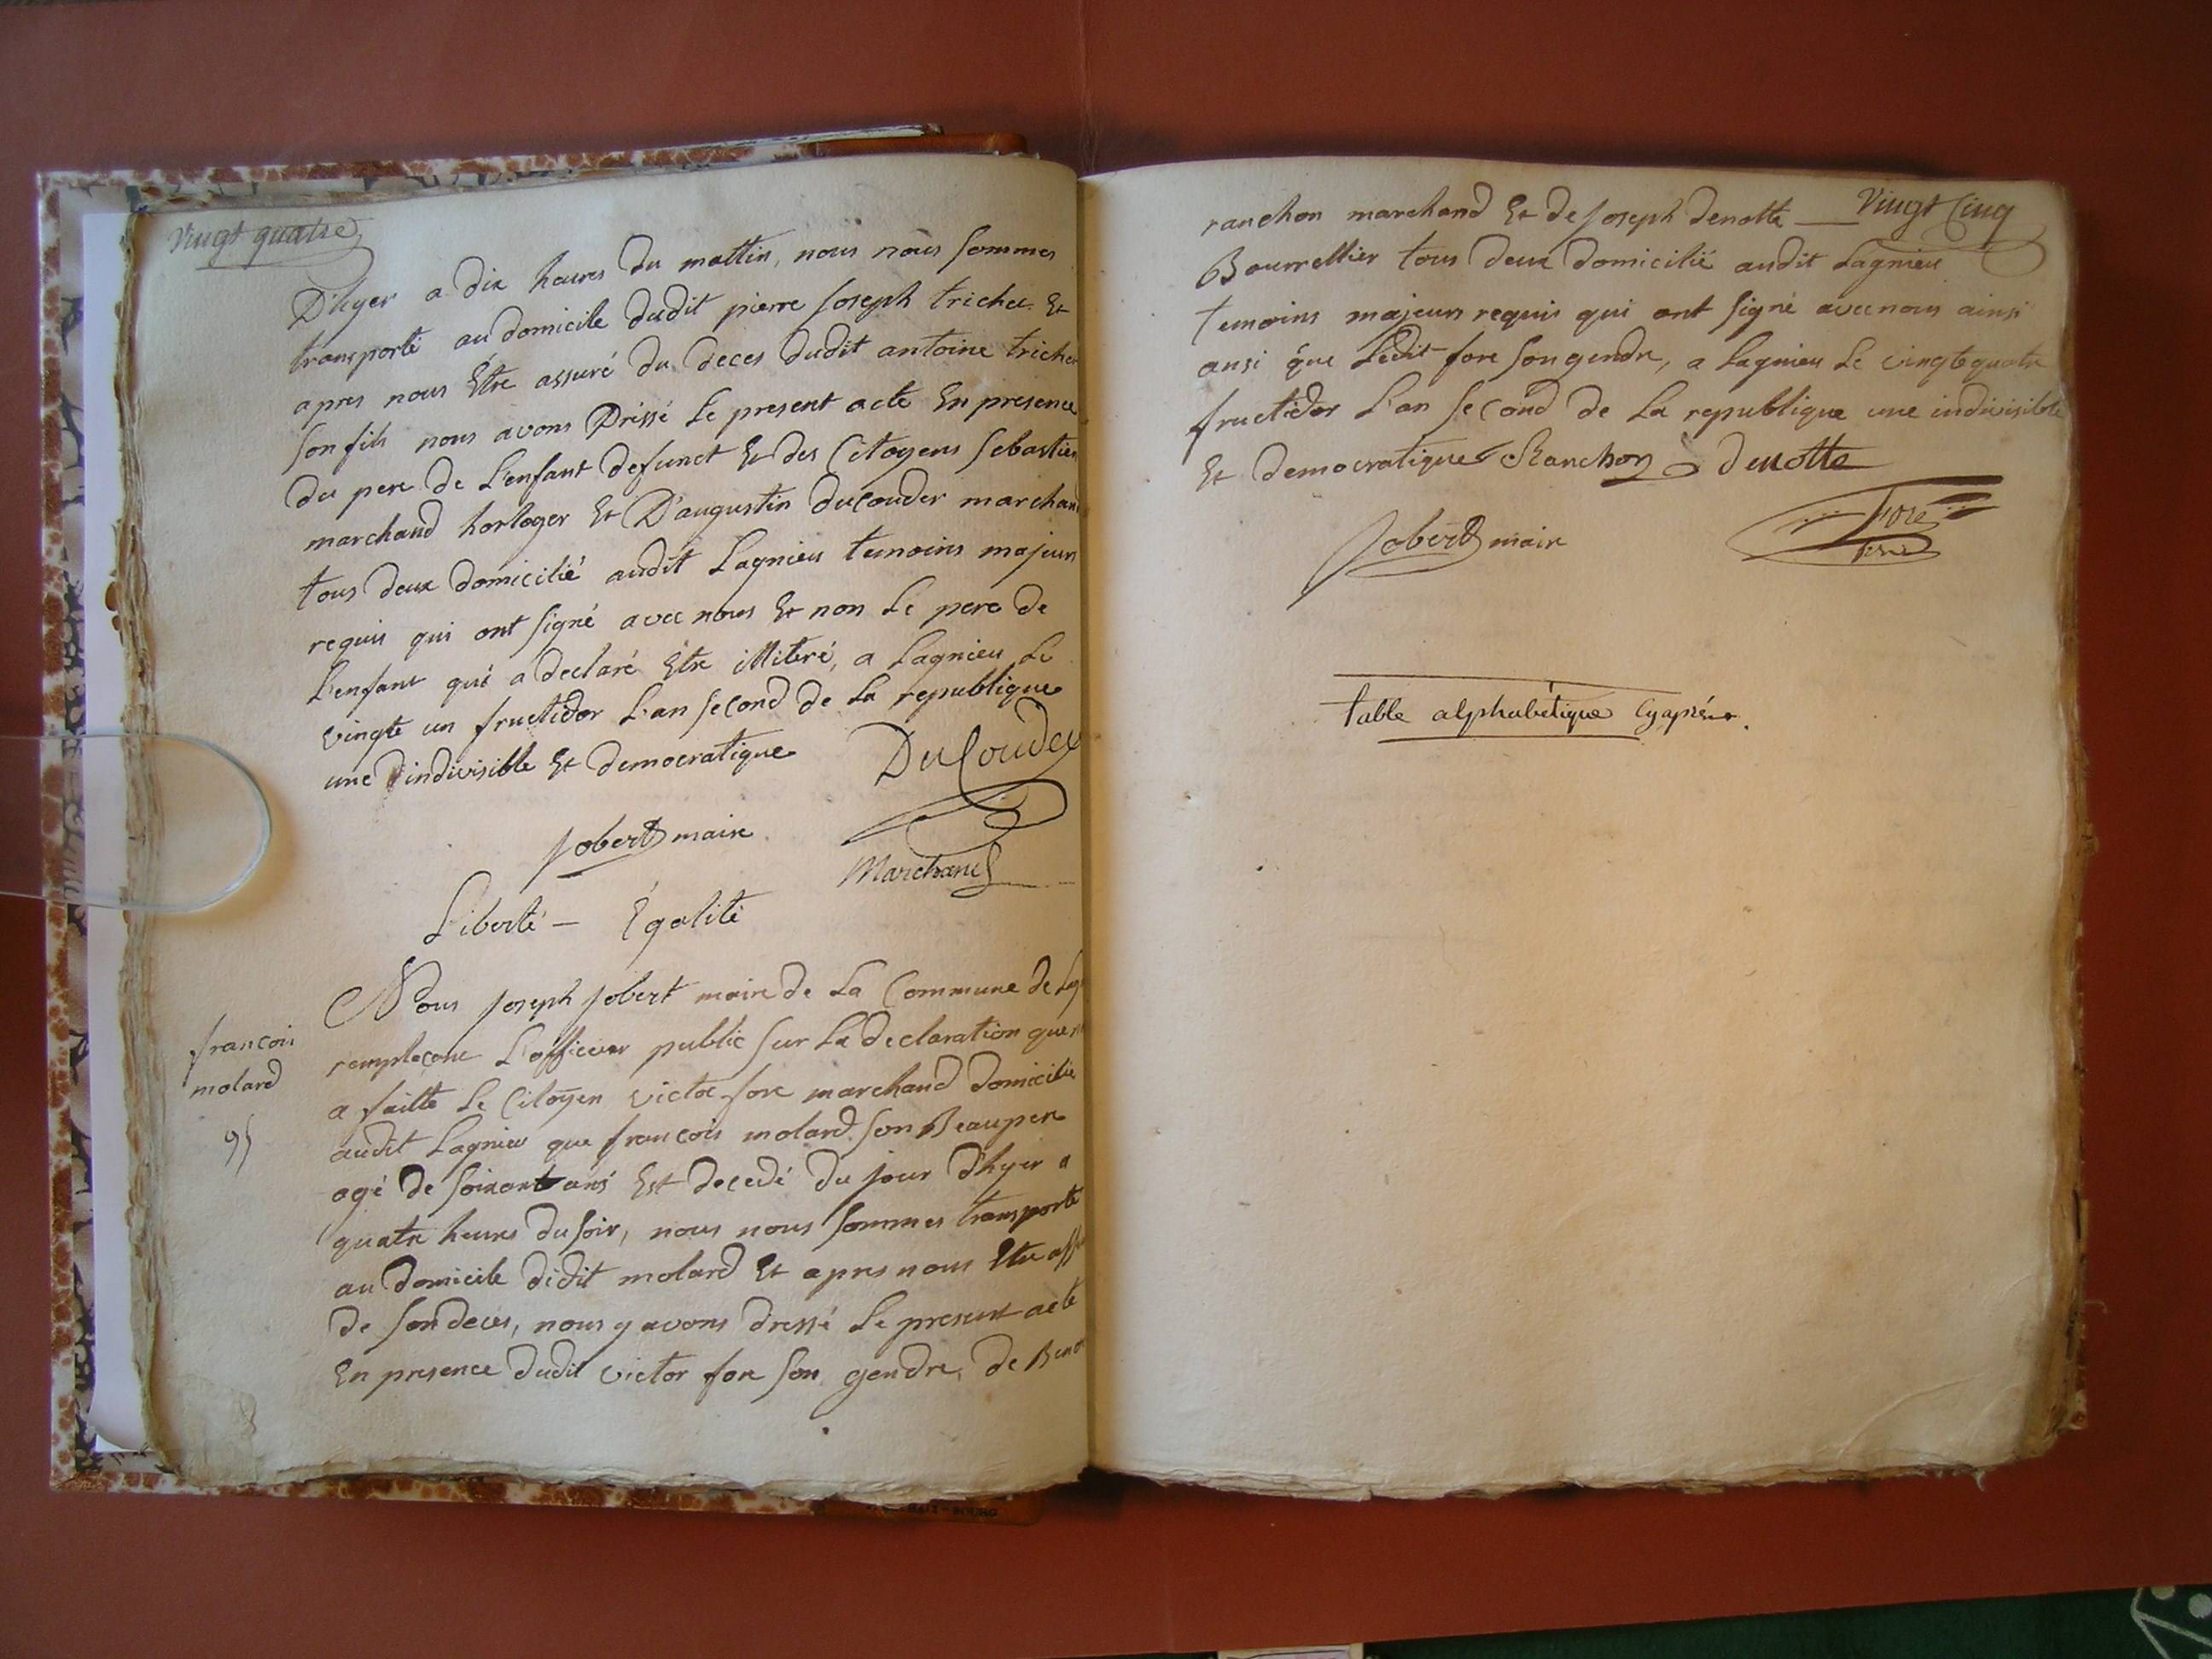 Vingt quatre
D'hyer a dix heures du mattin, nous nous sommes
transporté au domicile dudit pierre Joseph trichet Et
apres nous Être assuré du deces dudit antoine
son fils nous avons Dréssé Le present acte En presence
du pere de L'enfant defunct Et des Citoyens Sebastien
marchand horloger Et D'augustin ducouder marchand
tous deux domicilié audit Lagnieu temoins majeurs
requis qui ont signé avec nous Et non Le pere de
L'enfant qui a declaré Être illiteré, a Lagnieu Le
vingte un fructidor L'an second de La republique
une indivisible Et democratique
DuCouder
Jobert maire
Marchand
Liberté - Égalité
Nous Joseph Jobert maire de La Commune de
françois
molard
95
remplaçant L'officier public sur La declaration que
a faitte Le Citoyen victor fore marchand domicilié
audit Lagnieu que françois molard son Beaupere
agé de soixant ans Est decedé du jour d'hyer a
quatre heures du soir, nous nous sommes transporté
au domicile didit molard Et apres nous Etre
de son deces, nous y avons dressé Le present acte
En presence dudit victor fore son gendre, de
Vingt Cinq
ranchon marchand Et de Joseph denotte
Bourrellier tous deux domicilié audit Lagnieu
temoins majeurs requis qui ont signé avec nous ainsi
ansi que Ledit fore son gendre, a Lagnieu Le vingtequatre
fructidor L'an second de La republique une indivisible
Et democratique Ranchon denotte
Jobert maire
Fore
table alphabétique Cyaprés.